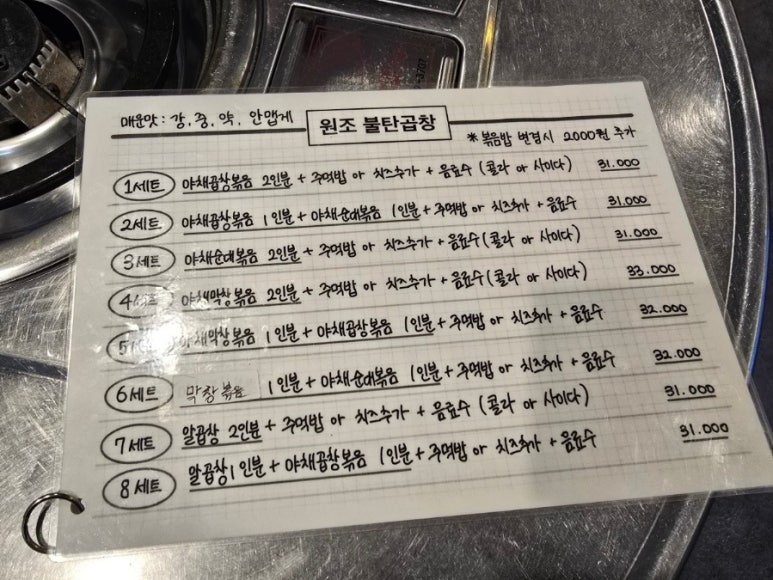 매운맛 : 강, 중, 약, 안맵게
원조 불탄곱창
* 볶음밥 변경시 2000원 추가
1세트 야채곱창볶음 2인분 + 주먹밥 or 치즈추가 + 음료수 (콜라 or 사이다) 31.000
2세트 야채곱창볶음 1인분 + 야채순대볶음 1인분 + 주먹밥 or 치즈추가 + 음료수 31.000
3세트 야채순대볶음 2인분 + 주먹밥 or 치즈추가 + 음료수 (콜라 or 사이다) 31.000
4세트 야채막창볶음 2인분 + 주먹밥 or 치즈추가 + 음료수 (콜라 or 사이다) 33.000
5세트 야채막창볶음 1인분 + 야채곱창볶음 1인분 + 주먹밥 or 치즈추가 + 음료수 32.000
6세트 막창볶음 1인분 + 야채순대볶음 1인분 + 주먹밥 or 치즈추가 + 음료수 32.000
7세트 알곱창 2인분 + 주먹밥 or 치즈추가 + 음료수 (콜라 or 사이다) 31.000
8세트 알곱창 1인분 + 야채곱창볶음 1인분 + 주먹밥 or 치즈추가 + 음료수 31.000